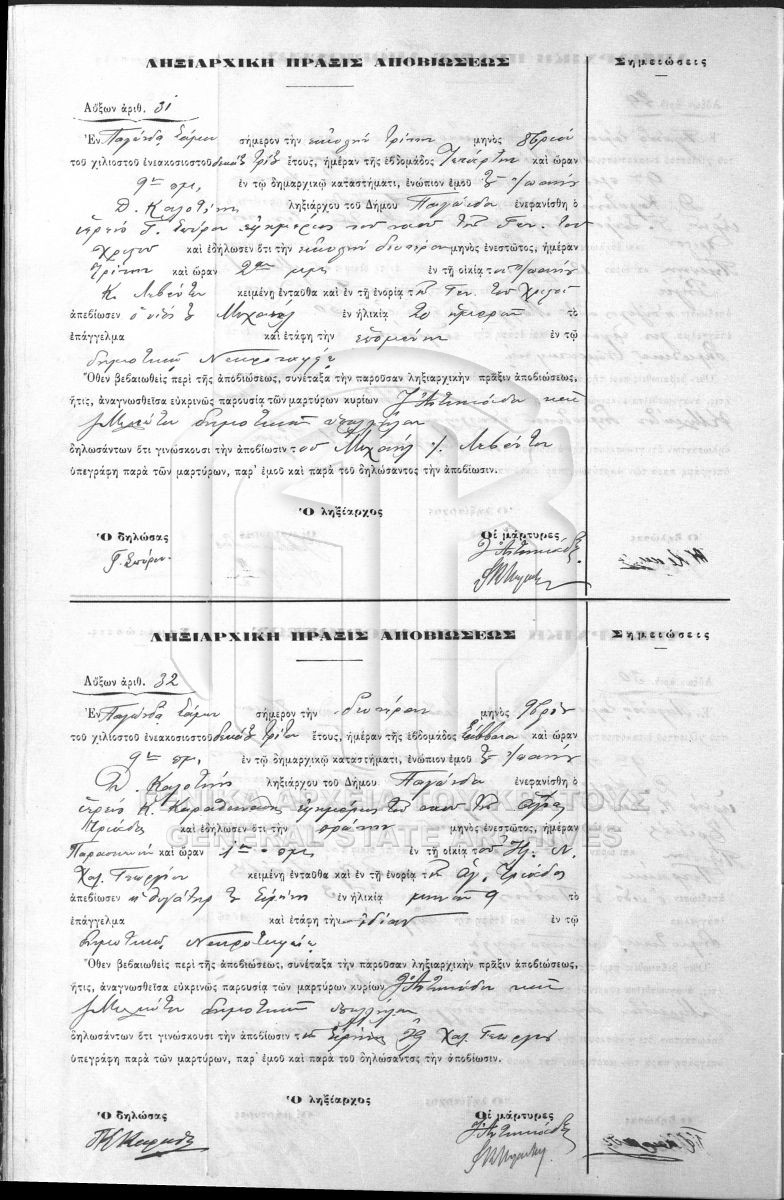 ΛΗΞΙΑΡΧΙΚΗ ΠΡΑΞΙΣ ΑΠΟΒΙΩΣΕΩΣ
Σημειώσεις
Αὔξων ἀριθ. 31
Ἐν Παγώνδα Σάμου σήμερον τὴν εἰκοστὴν τρίτην μηνὸς 8βρίου
τοῦ χιλιοστοῦ ἐνεακοσιοστοῦ δεκάτου τρίτου ἔτους, ἡμέραν τῆς ἑβδομάδος Τετάρτην καὶ ὥραν
9ην πμ, ἐν τῷ δημαρχικῷ καταστήματι, ἐνώπιον ἐμοῦ τοῦ Ἰωάννου
Δ. Καλοτίνη ληξιάρχου τοῦ Δήμου Παγώνδα ἐνεφανίσθη ὁ
ἱερεὺς Γ. Σπύρου ἐφημέριος τοῦ ναοῦ τῆς Γεν. τοῦ
Χριστοῦ καὶ ἐδήλωσεν ὅτι τὴν εἰκοστὴν δευτέραν μηνὸς ἐνεστῶτος, ἡμέραν
Τρίτην καὶ ὥραν 2αν μμ ἐν τῇ οἰκίᾳ τοῦ Ἰωάννου
Κ. Λεβέντη κειμένῃ ἐνταῦθα καὶ ἐν τῇ ἐνορίᾳ τῆς Γεν. τοῦ Χριστοῦ
ἀπεβίωσεν ὁ υἱός του Μιχαήλ ἐν ἡλικίᾳ 20 ἡμερῶν τὸ
ἐπάγγελμα καὶ ἐτάφη τὴν ἑπομένην ἐν τῷ
δημοτικῷ Νεκροταφείῳ
Ὅθεν βεβαιωθεὶς περὶ τῆς ἀποβιώσεως, συνέταξα τὴν παροῦσαν ληξιαρχικὴν πρᾶξιν ἀποβιώσεως,
ἥτις, ἀναγνωσθεῖσα εὐκρινῶς παρουσίᾳ τῶν μαρτύρων κυρίων
δημοτικῶν ὑπαλλήλων
δηλωσάντων ὅτι γινώσκουσι τὴν ἀποβίωσιν τοῦ Μιχαήλ Ἰ. Λεβέντη
ὑπεγράφη παρὰ τῶν μαρτύρων, παρ' ἐμοῦ καὶ παρὰ τοῦ δηλώσαντος τὴν ἀποβίωσιν.
Ὁ ληξίαρχος
Ὁ δηλώσας Οἱ μάρτυρες
Γ. Σπύρου
ΛΗΞΙΑΡΧΙΚΗ ΠΡΑΞΙΣ ΑΠΟΒΙΩΣΕΩΣ
Σημειώσεις
Αὔξων ἀριθ. 32
Ἐν Παγώνδα Σάμου σήμερον τὴν δευτέραν μηνὸς 9βρίου
τοῦ χιλιοστοῦ ἐνεακοσιοστοῦ δεκάτου τρίτου ἔτους, ἡμέραν τῆς ἑβδομάδος Σάββατον καὶ ὥραν
9ην πμ, ἐν τῷ δημαρχικῷ καταστήματι, ἐνώπιον ἐμοῦ τοῦ Ἰωάννου
Δ. Καλοτίνη ληξιάρχου τοῦ Δήμου Παγώνδα ἐνεφανίσθη ὁ
ἱερεὺς Κ. ἐφημέριος τοῦ ναοῦ τῆς Ἁγίας
Τριάδος καὶ ἐδήλωσεν ὅτι τὴν πρώτην μηνὸς ἐνεστῶτος, ἡμέραν
Παρασκευὴν καὶ ὥραν 1ην πμ ἐν τῇ οἰκίᾳ τοῦ
Χαλ. Γεωργίου κειμένῃ ἐνταῦθα καὶ ἐν τῇ ἐνορίᾳ τῆς Ἁγ. Τριάδος
ἀπεβίωσεν ἡ θυγάτηρ του Εἰρήνη ἐν ἡλικίᾳ μηνῶν 9 τὸ
ἐπάγγελμα καὶ ἐτάφη τὴν ἰδίαν ἐν τῷ
δημοτικῷ Νεκροταφείῳ
Ὅθεν βεβαιωθεὶς περὶ τῆς ἀποβιώσεως, συνέταξα τὴν παροῦσαν ληξιαρχικὴν πρᾶξιν ἀποβιώσεως,
ἥτις, ἀναγνωσθεῖσα εὐκρινῶς παρουσίᾳ τῶν μαρτύρων κυρίων
δημοτικῶν ὑπαλλήλων
δηλωσάντων ὅτι γινώσκουσι τὴν ἀποβίωσιν τῆς Εἰρήνης Χαλ. Γεωργίου
ὑπεγράφη παρὰ τῶν μαρτύρων, παρ' ἐμοῦ καὶ παρὰ τοῦ δηλώσαντος τὴν ἀποβίωσιν.
Ὁ ληξίαρχος
Ὁ δηλώσας Οἱ μάρτυρες
GENERAL STATE ARCHIVES